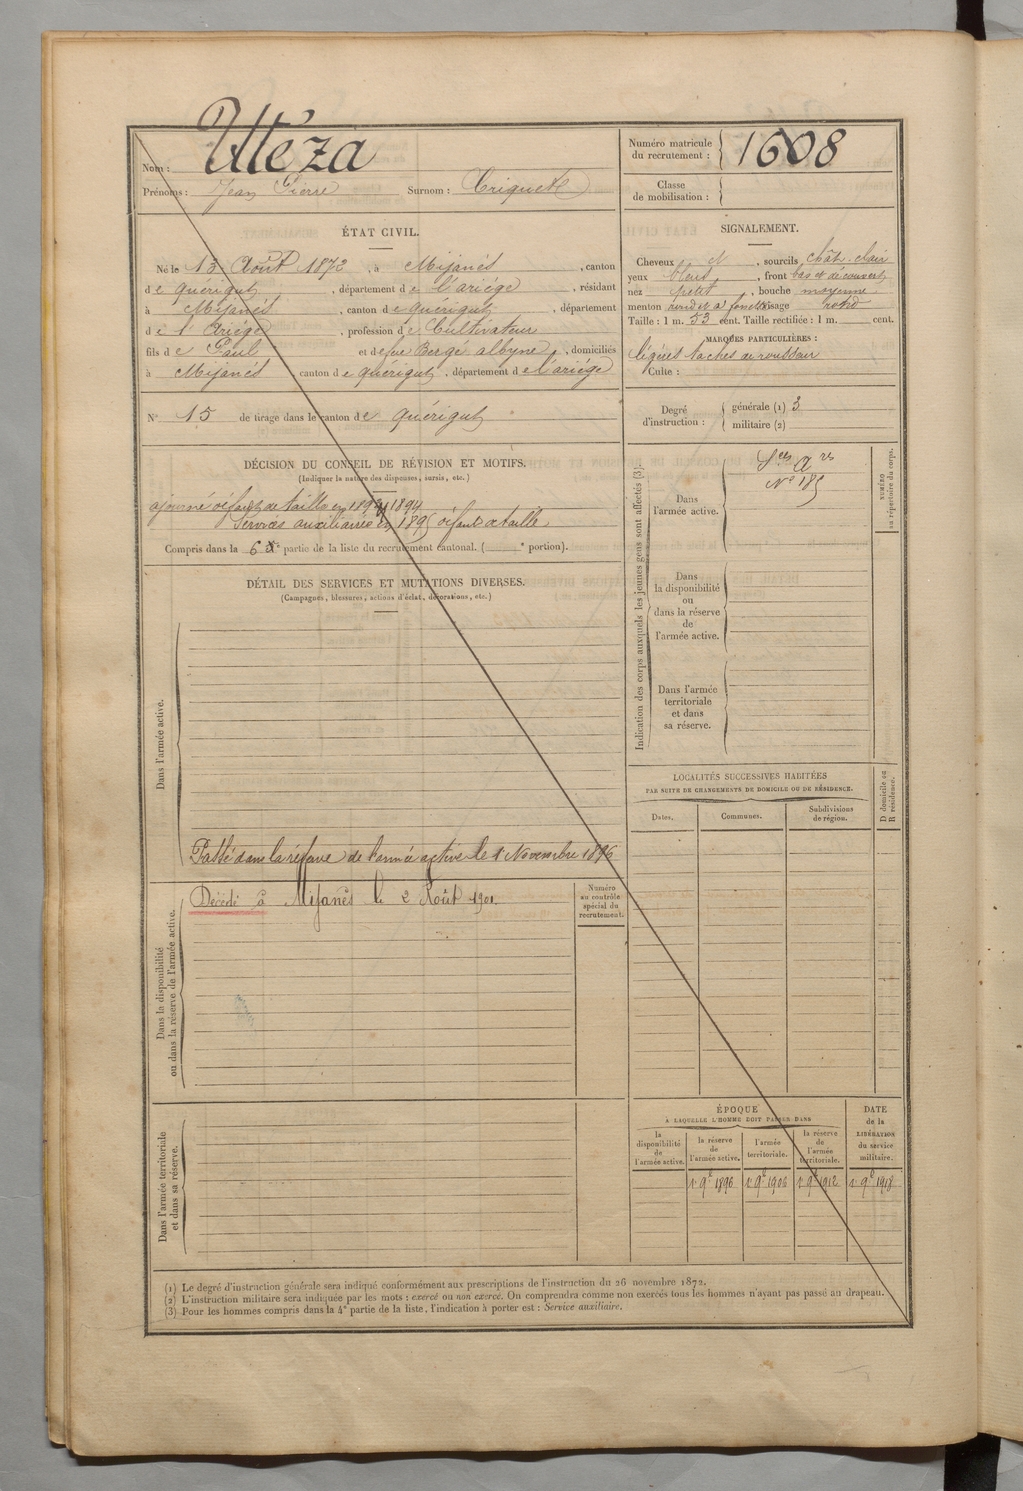 Nom : Utéza
Prénoms : Jean Pierre Surnom : Triquete
Numéro matricule du recrutement : 1608
Classe de mobilisation :
ÉTAT CIVIL.
Né le 13 Août 1872, à Mijanès, canton
de quérigut, département de l'ariége, résidant
à Mijanès, canton de quérigut, département
de l'Ariége, profession de Cultivateur
fils de Paul et de feue Bergé albyne, domiciliés
à Mijanès canton de quérigut, département de l'ariége
N° 15 de tirage dans le canton de quérigut
SIGNALEMENT.
Cheveux et, sourcils chât. clair
yeux bleus, front bas et découvert
nez petit, bouche moyenne
menton rond et à fossette visage rond
Taille : 1 m. 53 cent. Taille rectifiée : 1 m. cent.
MARQUES PARTICULIÈRES :
légères taches de rousseur
Culte :
Degré d'instruction : générale (1) 3
militaire (2)
DÉCISION DU CONSEIL DE RÉVISION ET MOTIFS.
(Indiquer la nature des dispenses, sursis, etc.)
ajourné défaut de taille en 1893, 1894
Services auxiliaires en 1895 défaut de taille
Compris dans la 6e partie de la liste du recrutement cantonal. ( e portion).
DÉTAIL DES SERVICES ET MUTATIONS DIVERSES.
(Campagnes, blessures, actions d'éclat, décorations, etc.)
Dans l'armée active.
Passé dans la réserve de l'armée active le 1 Novembre 1896
Dans la disponibilité
ou dans la réserve de l'armée active.
Décédé à Mijanès le 2 Août 1901
Numéro
au contrôle
spécial du
recrutement.
Dans l'armée territoriale
et dans sa réserve.
Indication des corps auxquels les jeunes gens sont affectés (3).
NUMÉRO
au répertoire du corps.
Dans
l'armée active.
Sces Ares
N° 185
Dans
la disponibilité
ou
dans la réserve
de
l'armée active.
Dans l'armée
territoriale
et dans
sa réserve.
LOCALITÉS SUCCESSIVES HABITÉES
PAR SUITE DE CHANGEMENTS DE DOMICILE OU DE RÉSIDENCE.
Dates. Communes. Subdivisions de région.
D domicile ou
R résidence.
ÉPOQUE
À LAQUELLE L'HOMME DOIT PASSER DANS
la disponibilité de l'armée active.
la réserve de l'armée active.
l'armée territoriale.
la réserve de l'armée territoriale.
DATE de la LIBÉRATION du service militaire.
1er 9bre 1896 1er 9bre 1906 1er 9bre 1912 1er 9bre 1918
(1) Le degré d'instruction générale sera indiqué conformément aux prescriptions de l'instruction du 26 novembre 1872.
(2) L'instruction militaire sera indiquée par les mots : exercé ou non exercé. On comprendra comme non exercés tous les hommes n'ayant pas passé au drapeau.
(3) Pour les hommes compris dans la 4e partie de la liste, l'indication à porter est : Service auxiliaire.